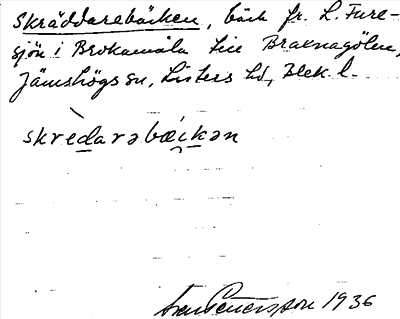 Skräddarebäcken, bäck fr. L. Fure-
sjön i Brokamåla till Braknagölen,
Jämshögs sn, Listers hd, Blek. l.
skrèdarəbǽkən
Petersson 1936